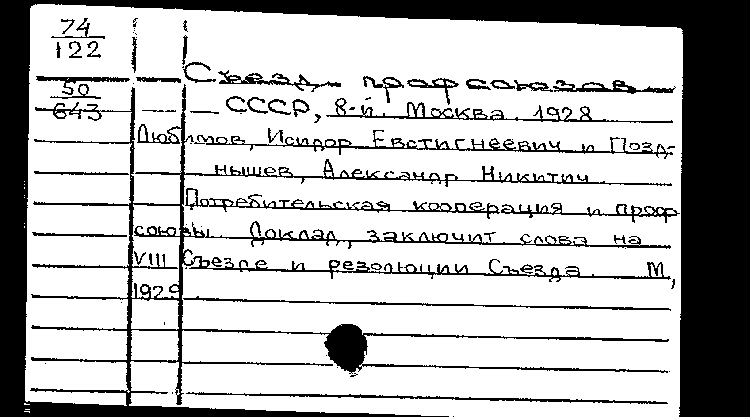 74
122
Съезд профсоюзов
50
643
СССР, 8-й. Москва. 1928
Любимов, Исидор Евстигнеевич и Позд-
нышев, Александр Никитич
Потребительская кооперация и проф
союзы. Доклад, заключит слова на
VIII Съезде и резолюции Съезда. М,
1929.